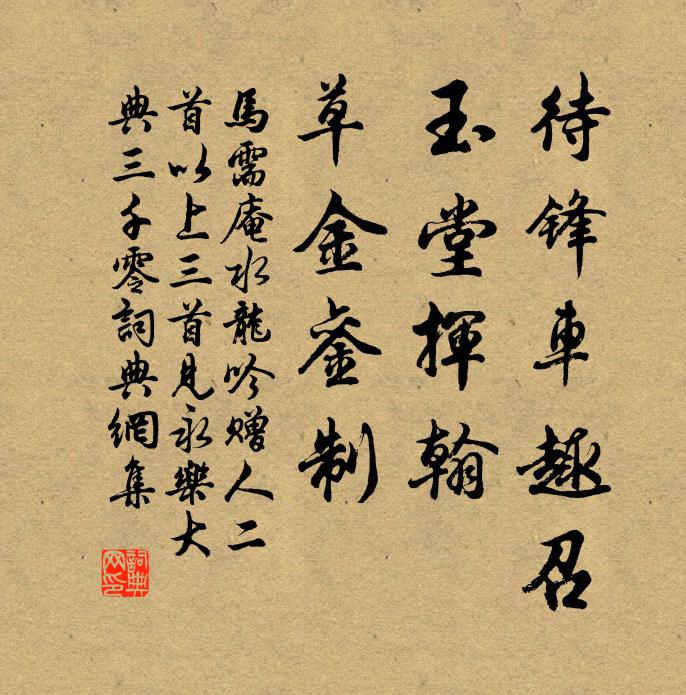 待鋒車趣召
玉堂揮翰
草金銮制
馬需庵水龍吟赠人二
首以上三首見永樂大
典三千零詞典網集
詞典網印